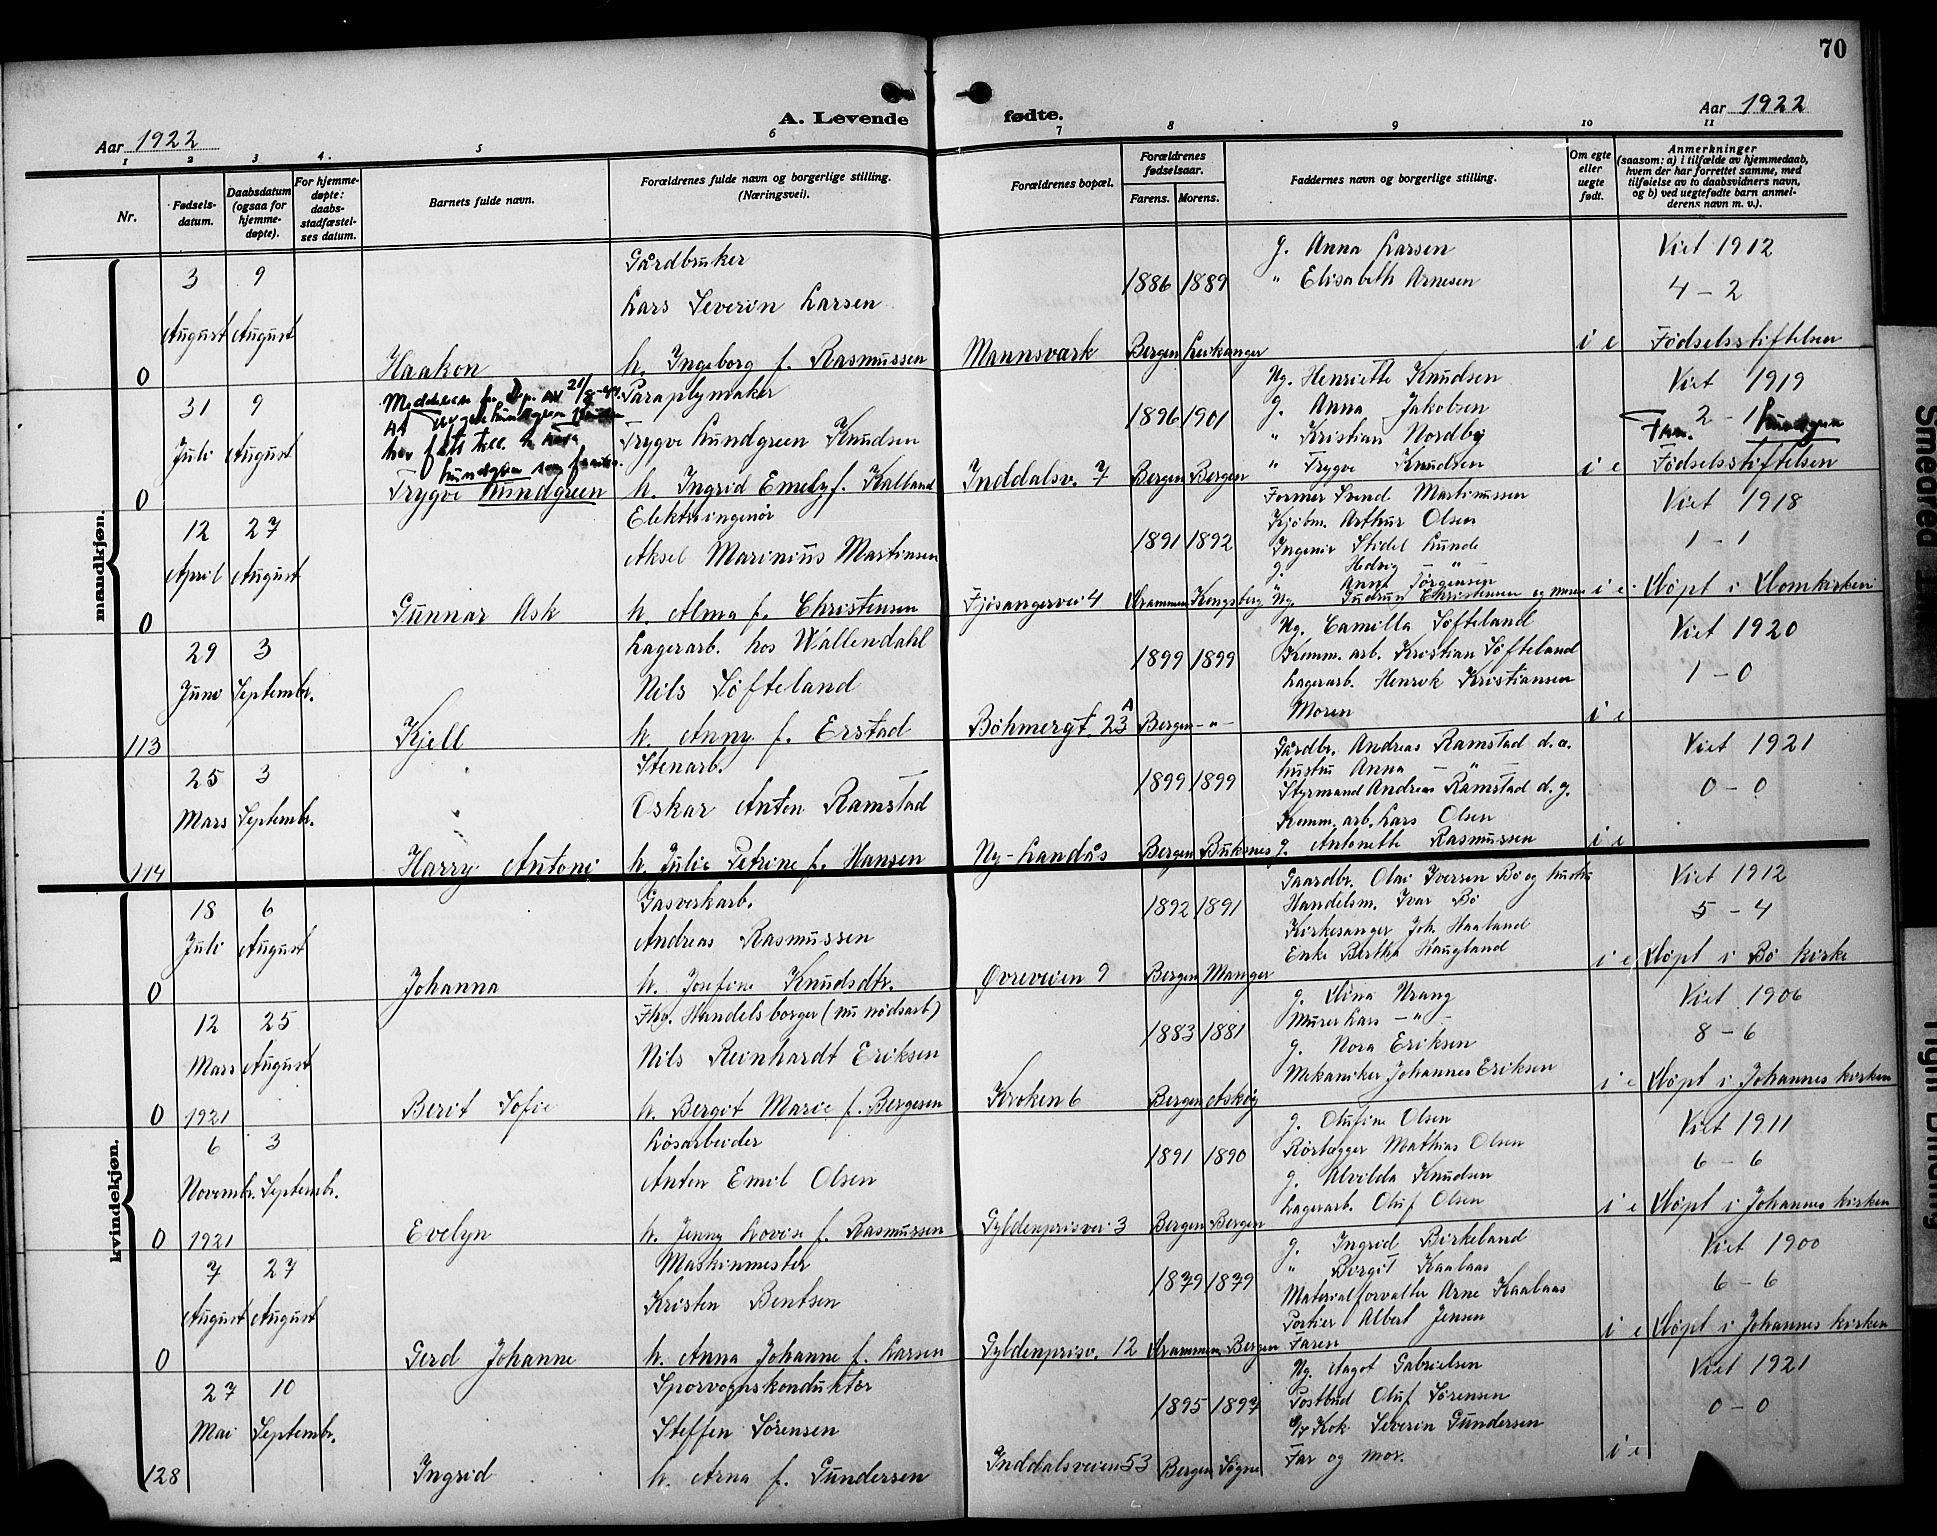 70
Aar 1922
A. Levende fødte.
Aar 1922
1 2 3 4. 5 6 7 8 9 10 11
Nr.
Fødsels-
datum.
Daabsdatum
(ogsaa for
hjemme-
døpte).
For hjemme-
døpte:
daabs-
stadfæstel-
ses datum.
Barnets fulde navn.
Forældrenes fulde navn og borgerlige stilling.
(Næringsvei).
Forældrenes bopæl.
Forældrenes
fødselsaar.
Farens. Morens.
Faddernes navn og borgerlige stilling.
Om egte
eller
uegte
født.
Anmerkninger
(saasom: a) i tilfælde av hjemmedaab,
hvem der har forrettet samme, med
tilføielse av to daabsvidners navn,
og b) ved uegtefødte barn anmel-
derens navn m. v.).
mandkjøn.
Gårdbruker
g. Anna Larsen
Viet 1912
3 9
Lars Severin Larsen
1886 1889
" Elisabeth Arnesen
4 - 2
August August
0 Haakon
h. Ingeborg f. Rasmussen
Mannsverk Bergen Leikanger
i e Fødselsstiftelsen
31 9
Paraplymaker
Ug. Henriette Knudsen
Viet 1919
Juli August
Trygve Lundgreen Knudsen
1896 1901
g. Anna Jakobsen
2 - 1
" Kristian Nordby
Lundgreen
" Trygve Knudsen
0 Trygve Lundgreen
h. Ingrid Emely f. Kalland
Inddalsv. 7 Bergen Bergen
i e Fødselsstiftelsen
12 27
Elektroingeniør
Former Svend Martinussen
Viet 1918
April August
Aksel Marinius Martinsen
1891 1892
Kjøbm. Arthur Olsen
1 - 1
Ingeniør Stidel Lunde
g. Hedvig - " -
" Anna Jørgensen
0 Gunnar Ask
h. Alma f. Christensen
Fjøsangervei 4 Drammen Kongsberg
Ug. Gudrun Christensen og moren
i e Døpt i Domkirken
29 3
Lagerarb. hos Wallendahl
Ug. Camilla Søfteland
Viet 1920
Juni Septembr.
Nils Søfteland
1899 1899
Komm. arb. Kristian Søfteland
1 - 0
Lagerarb. Henrik Kristiansen
113 Kjell
h. Anny f. Erstad
Bøhmergt 23 A Bergen - " -
Moren
i e
25 3
Stenarb.
Gårdbr. Andreas Ramstad d.æ.
Viet 1921
Mars Septembr.
Oskar Anton Ramstad
1899 1899
hustru Anna - " -
0 - 0
Styrmand Andreas Ramstad d. y.
Komm. arb. Lars Olsen
114 Harry Antoni
h. Julie Petrine f. Hansen
Ny-Landås Bergen Buksnes
g. Antonette Rasmussen
i e
kvindekjøn.
18 6
Gasverkarb.
Gaardbr. Olai Iversen Bø og hustru
Viet 1912
Juli August
Andreas Rasmussen
1892 1891
Handelsm. Ivar Bø
5 - 4
Kirkesanger Joh. Haaland
Enke Bertha Haugland
0 Johanna
h. Josefine Knudsdtr.
Øvreveien 9 Bergen Manger
i e Døpt i Bø kirke
12 25
Fhv. Handelsborger (nu nødsarb)
g. Dina Urang
Viet 1906
Mars August
Nils Reinhardt Eriksen
1883 1881
Murer Lars - " -
8 - 6
g. Nora Eriksen
Mekaniker Johannes Eriksen
0 1921 Berit Sofie
h. Bergit Marie f. Bergesen
Kroken 6 Bergen Askøy
i e Døpt i Johanneskirken
6 3
Løsarbeider
g. Olufine Olsen
Viet 1911
Novembr. Septembr.
Anton Emil Olsen
1891 1890
Rørlægger Mathias Olsen
6 - 6
g. Alvilda Knudsen
Lagerarb. Oluf Olsen
0 1921 Evelyn
h. Jenny Lovise f. Rasmussen
Gyldenprisvei 3 Bergen Bergen
i e Døpt i Johanneskirken
7 27
Maskinmester
g. Ingrid Birkeland
Viet 1900
August August
Kristen Bentsen
1879 1879
" Borgit Kaalaas
6 - 6
Materialforvalter Arne Kaalaas
Portier Albert Jensen
0 Gerd Johanne
h. Anna Johanne f. Larsen
Gyldenprisv. 12 Drammen Bergen
Faren
i e Døpt i Johanneskirken
27 10
Sporvognskonduktør
Ug. Aagot Gabrielsen
Viet 1921
Mai Septembr.
Steffen Sørensen
1895 1897
Postbud Oluf Sørensen
0 - 0
Kok Severin Gundersen
128 Ingrid
h. Arna f. Gundersen
Inddalsveien 53 Bergen Søgne
Far og mor.
i e